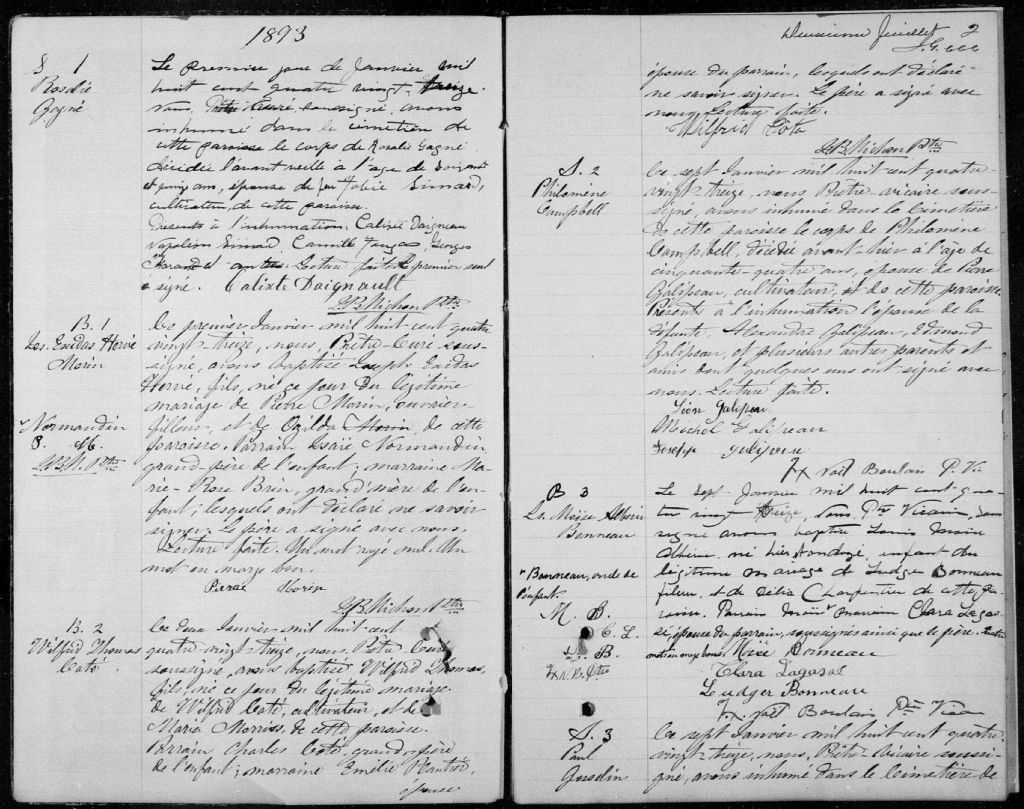 1893
S 1
Rosalie
Gagné
Le premier jour de Janvier mil
huit cent quatre vingt treize
nous Prêtre Curé soussigné avons
inhumé dans le cimetière de
cette paroisse le corps de Rosalie Gagné
décédée l'avant veille à l'age de soixante
et ans, épouse de feu Simard,
cultivateur, de cette paroisse.
Présents à l'inhumation: Calixte Daigneau
Napoléon Simard Camille Georges
et autres. Lecture faite. Le premier seul
a signé. Calixte Daignault
J.B. Michon Ptre
B. 1
Jos. Exidas Hervé
Morin
Ce premier Janvier mil huit-cent quatre
vingt-treize, nous, Prêtre-Curé sous-
signé, avons baptisé Joseph Exidas
Hervé, fils, né ce jour du légitime
mariage de Pierre Morin, ouvrier-
fileur, et de Ozilda Morin, de cette
paroisse. Parrain Isaïe Normandin
grand-père de l'enfant; marraine Ma-
rie-Rose Brin, grand'mère de l'en-
fant; lesquels ont déclaré ne savoir
signer. Le père a signé avec nous.
Lecture faite. Un mot rayé nul. Un
mot en marge bon.
Normandin
J.B.M. Ptre
Pierre Morin
J.B. Michon Ptre
B. 2
Wilfrid Thomas
Coté
Ce deux Janvier mil huit-cent
quatre-vingt-treize, nous, Prêtre Curé
soussigné, avons baptisé Wilfrid Thomas,
fils, né ce jour du légitime mariage
de Wilfrid Coté, cultivateur, et de
Maria Morriss, de cette paroisse.
Parrain Charles Coté, grand-père
de l'enfant; marraine Emilie Plantier,
épouse
Deuxième feuillet 2
épouse du parrain, lesquels ont déclaré
ne savoir signer. Le père a signé avec
nous. Lecture faite.
Wilfrid Cota
J.B. Michon Ptre
S. 2
Philomène
Campbell
Ce sept Janvier mil huit cent quatre
vingt-treize, nous Prêtre-vicaire sous-
signé, avons inhumé dans le Cimetière
de cette paroisse le corps de Philomène
Campbell, décédée avant-hier à l'âge de
cinquante-quatre ans, épouse de Pierre
Galipeau, cultivateur, et de cette paroisse.
Présents à l'inhumation l'épouse de la
défunte, Alexandre Galipeau, Edmond
Galipeau, et plusieurs autres parents et
amis dont quelques uns ont signé avec
nous. Lecture faite.
Léon Galipeau
Michel Galipeau
Joseph Galipeau
Noël Boulais P. Vic
B 3
Ls. Moïse Albéric
Bonneau
Le sept Janvier mil huit cent qua-
tre vingt treize, nous, Ptre Vicaire, sous-
signé avons baptisé Louis Moïse
Albéric né hier ondoyé, enfant du
légitime mariage de Ludger Bonneau
fileur, et de Délia Charpentier de cette pa-
roisse. Parrain Moïse marraine Clara Lagas-
sé, épouse du parrain, soussignés ainsi que le père.
Bonneau, oncle de
l'enfant.
M. B.
C. L.
L. B.
N.B. Ptre
Moïse Bonneau
Clara Lagassé
Ludger Bonneau
Noël Boulais Ptre Vicaire
S. 3
Paul
Gosselin
Ce sept Janvier mil huit cent quatre
vingt-treize, nous, Prêtre-Vicaire soussi-
gné, avons inhumé dans le Cimetière de